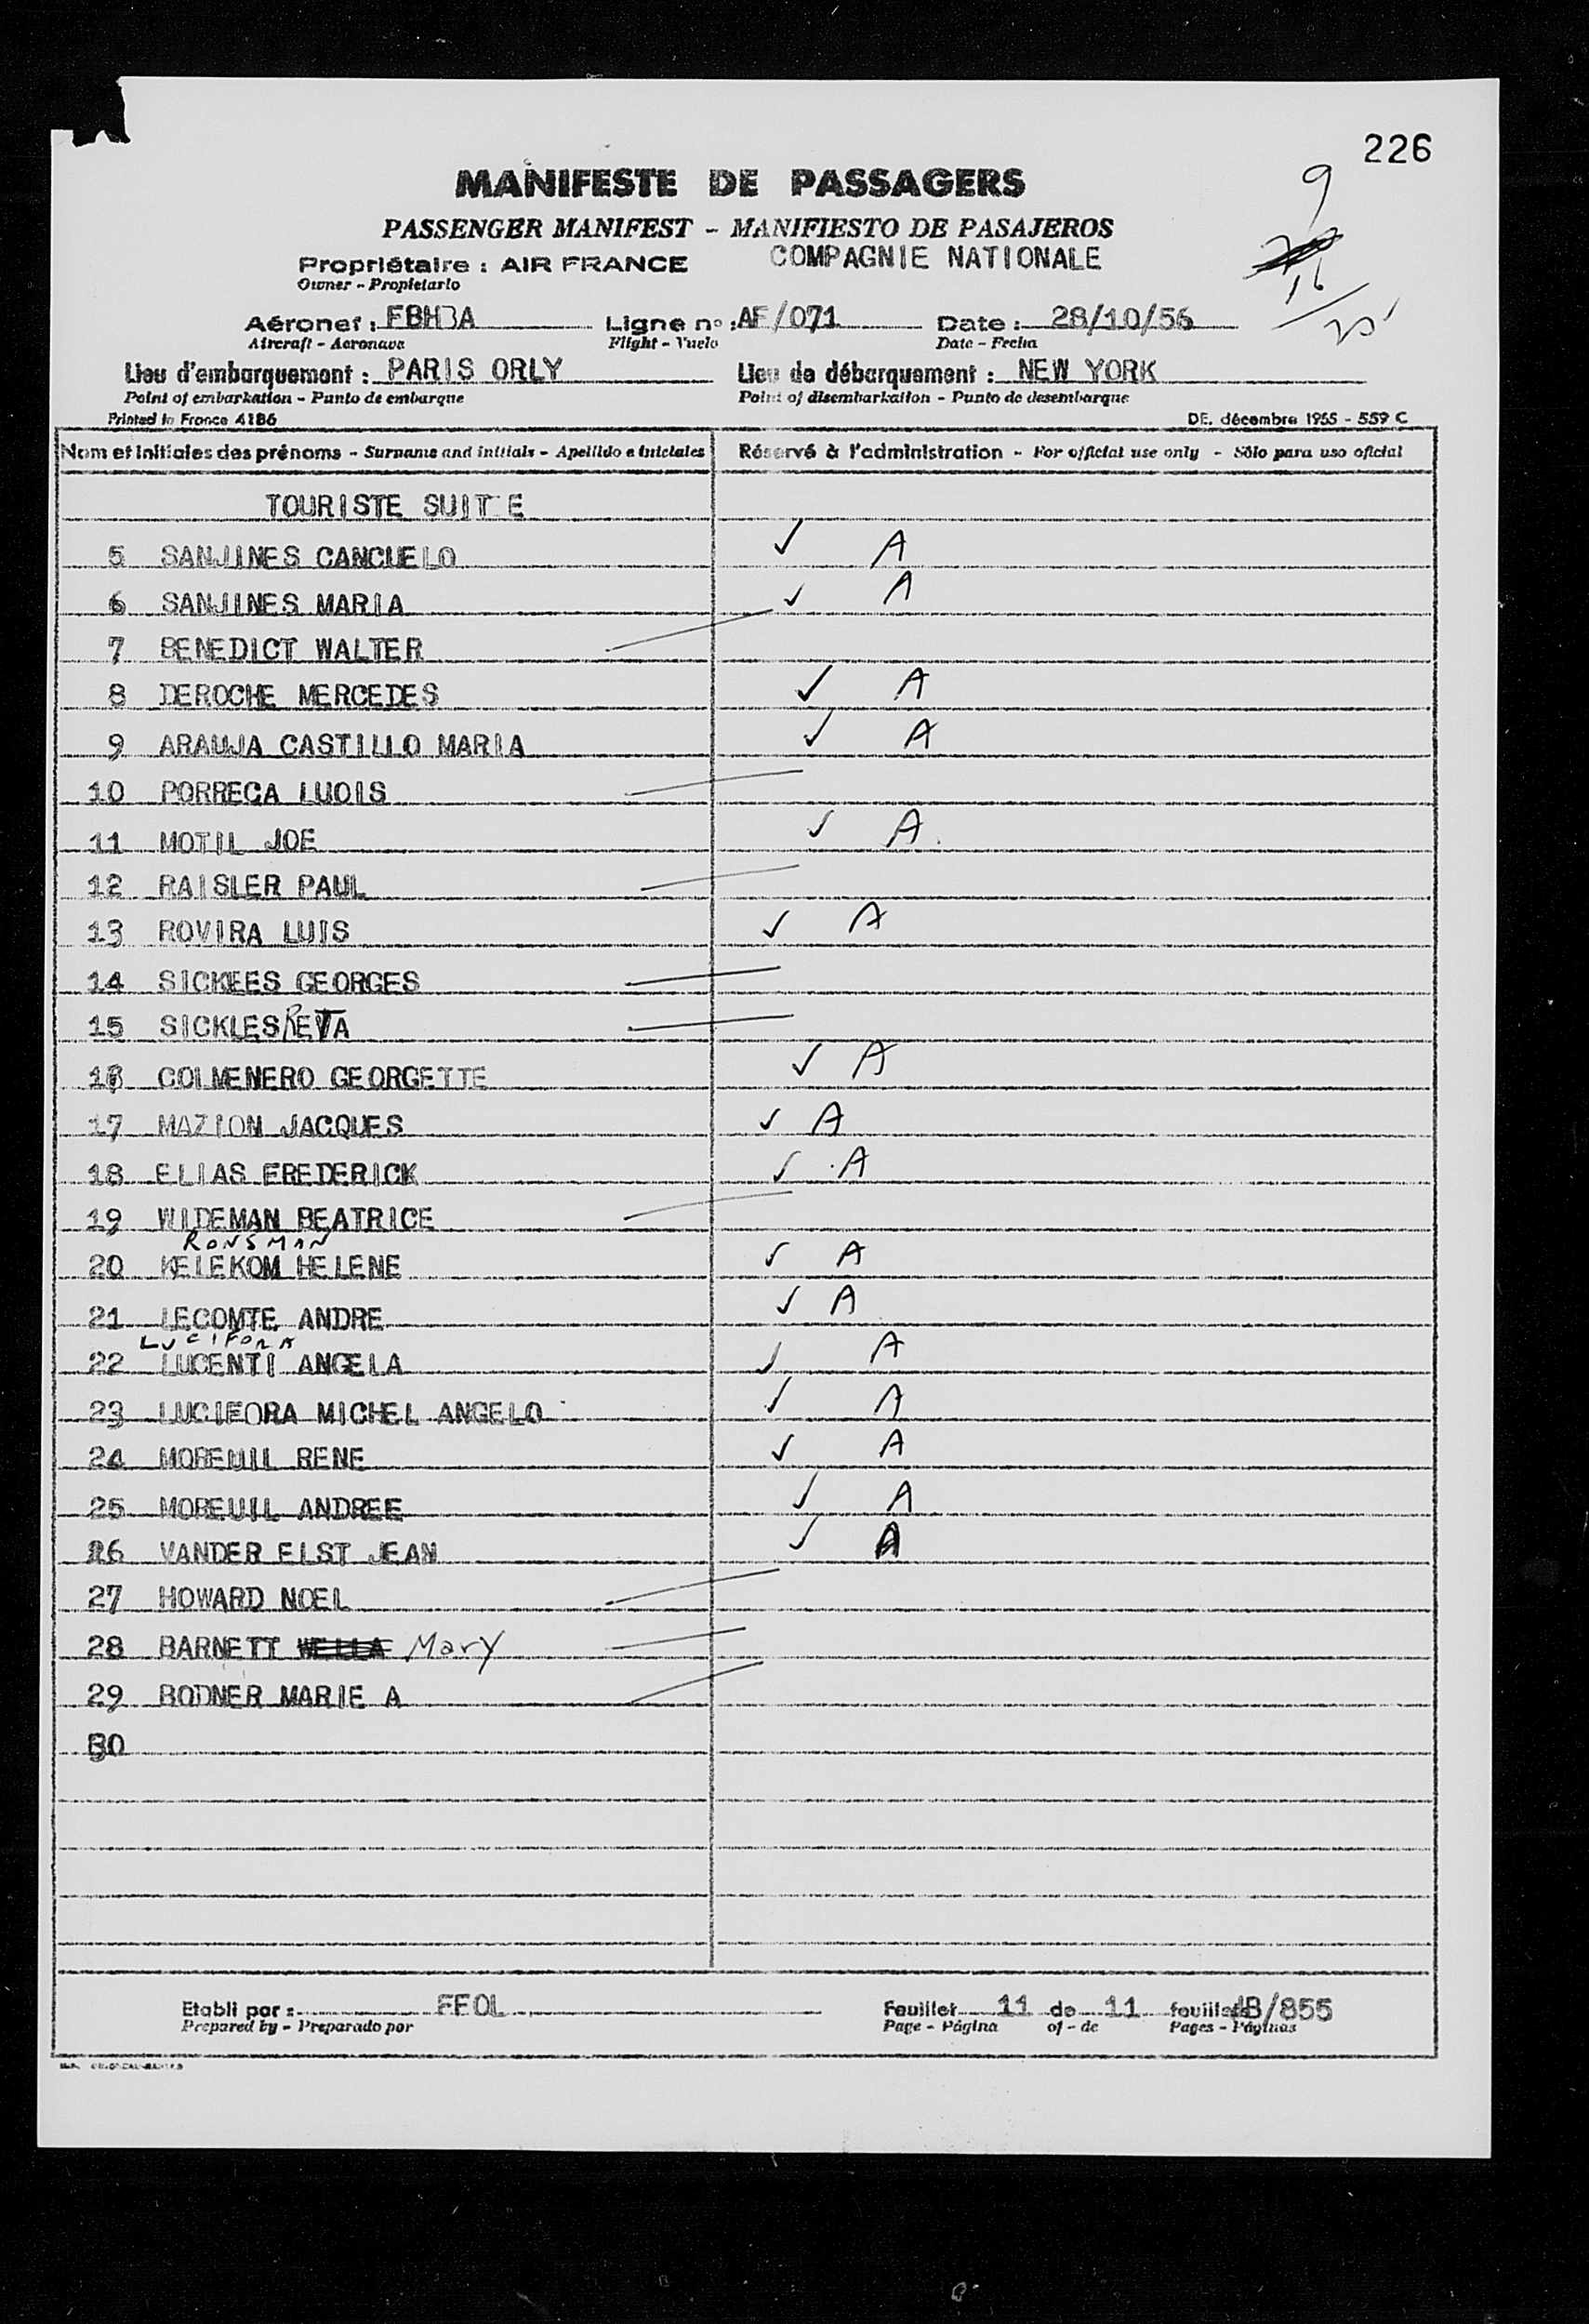 226
MANIFESTE DE PASSAGERS
PASSENGER MANIFEST - MANIFIESTO DE PASAJEROS
COMPAGNIE NATIONALE
Propriétaire : AIR FRANCE
Owner - Propietario
9
16
25
Aéronef : FBHBA Ligne nº : AF/071 Date : 28/10/56
Aircraft - Aeronave Flight - Vuelo Date - Fecha
Lieu d'embarquement : PARIS ORLY Lieu de débarquement : NEW YORK
Point of embarkation - Punto de embarque Point of disembarkation - Punto de desembarque
Printed in France 4186 DE. décembre 1955 - 559 C
Nom et initiales des prénoms - Surname and initials - Apellido e iniciales Réservé à l'administration - For official use only - Sólo para uso oficial
TOURISTE SUITE
5 SANJINES CANCUELO ✓ A
6 SANJINES MARIA ✓ A
7 BENEDICT WALTER
8 DEROCHE MERCEDES ✓ A
9 ARAUJA CASTILLO MARIA ✓ A
10 PORRECA LUOIS
11 MOTIL JOE ✓ A
12 RAISLER PAUL
13 ROVIRA LUIS ✓ A
14 SICKLES GEORGES
15 SICKLES RETA
16 COLMENERO GEORGETTE ✓ A
17 MAZION JACQUES ✓ A
18 ELIAS FREDERICK ✓ A
19 WIDEMAN BEATRICE
RONSMAN
20 KELEKOM HELENE ✓ A
21 LECOMTE ANDRE ✓ A
LUCIFORA
22 LUCENTI ANGELA ✓ A
23 LUCIFORA MICHEL ANGELO ✓ A
24 MOREUIL RENE ✓ A
25 MOREUIL ANDREE ✓ A
26 VANDER ELST JEAN ✓ A
27 HOWARD NOEL
28 BARNETT WELLA Mary
29 BODNER MARIE A
30
Etabli par : FEOL Feuillet 11 de 11 feuillets JB/855
Prepared by - Preparado por Page - Página of - de Pages - Páginas